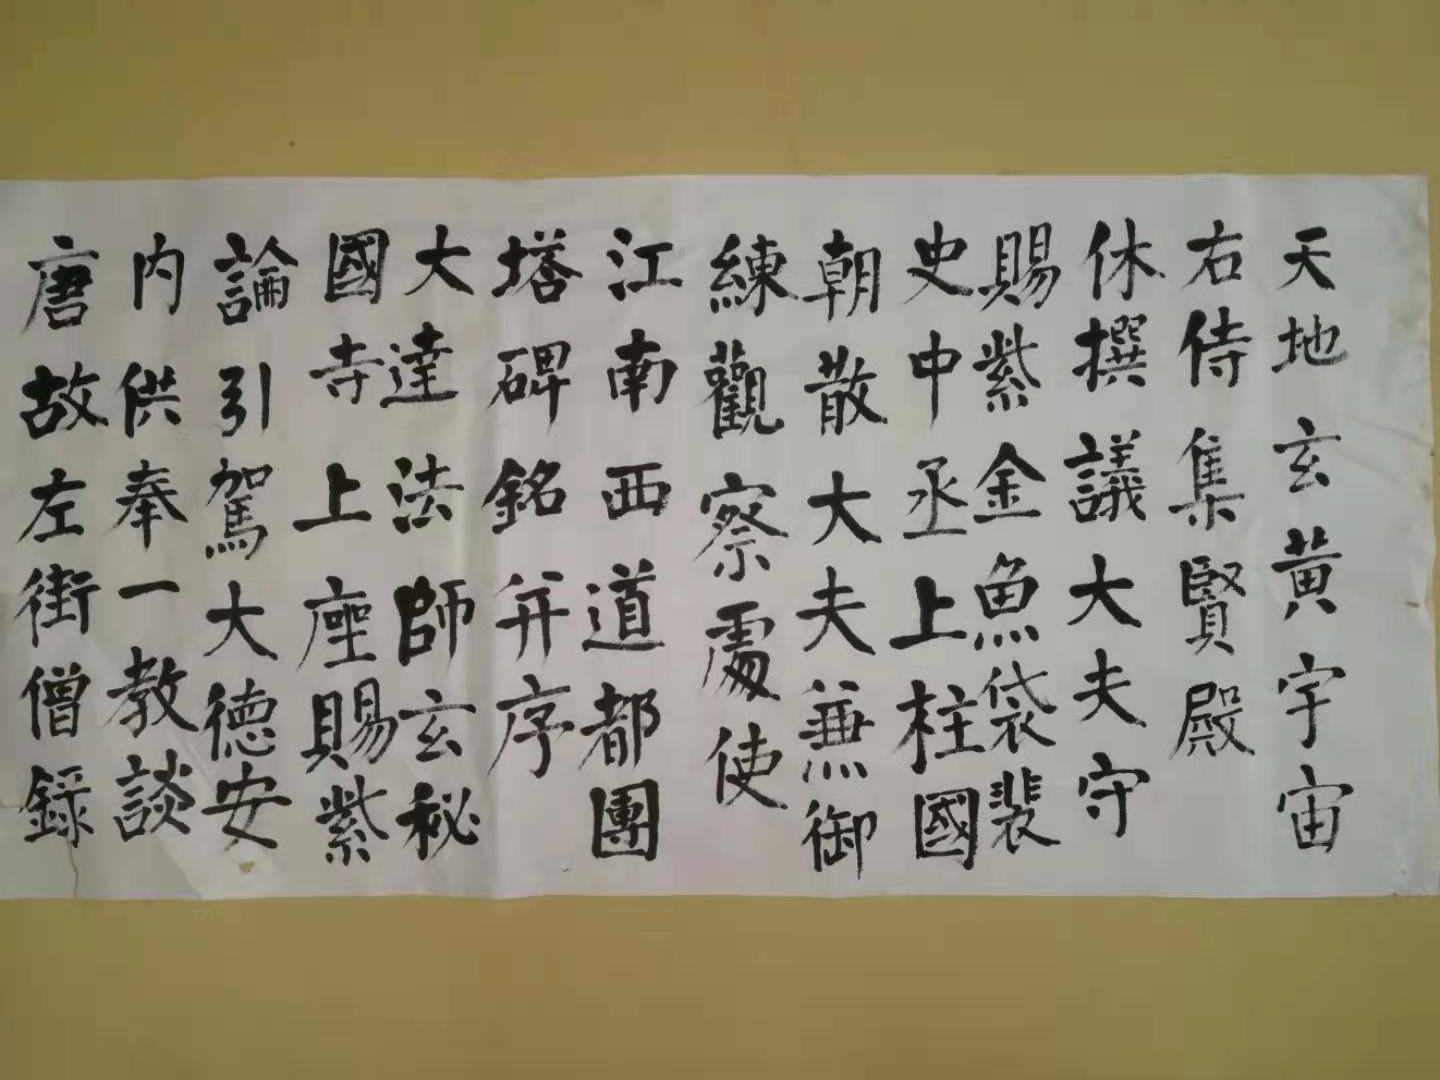 唐故左街僧録
内供奉一教談
論引駕大德安
國寺上座賜紫
大達法師玄秘
塔碑銘并序
江南西道都團
練觀察處使
朝散大夫兼御
史中丞上柱國
賜紫金魚袋裴
休撰議大夫守
右侍集賢殿
天地玄黄宇宙